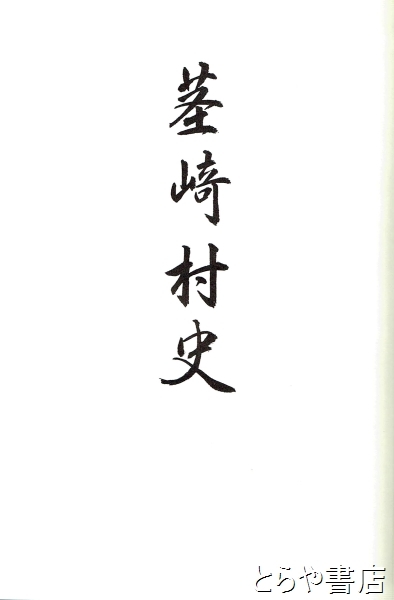 茎崎村史
とらや書店